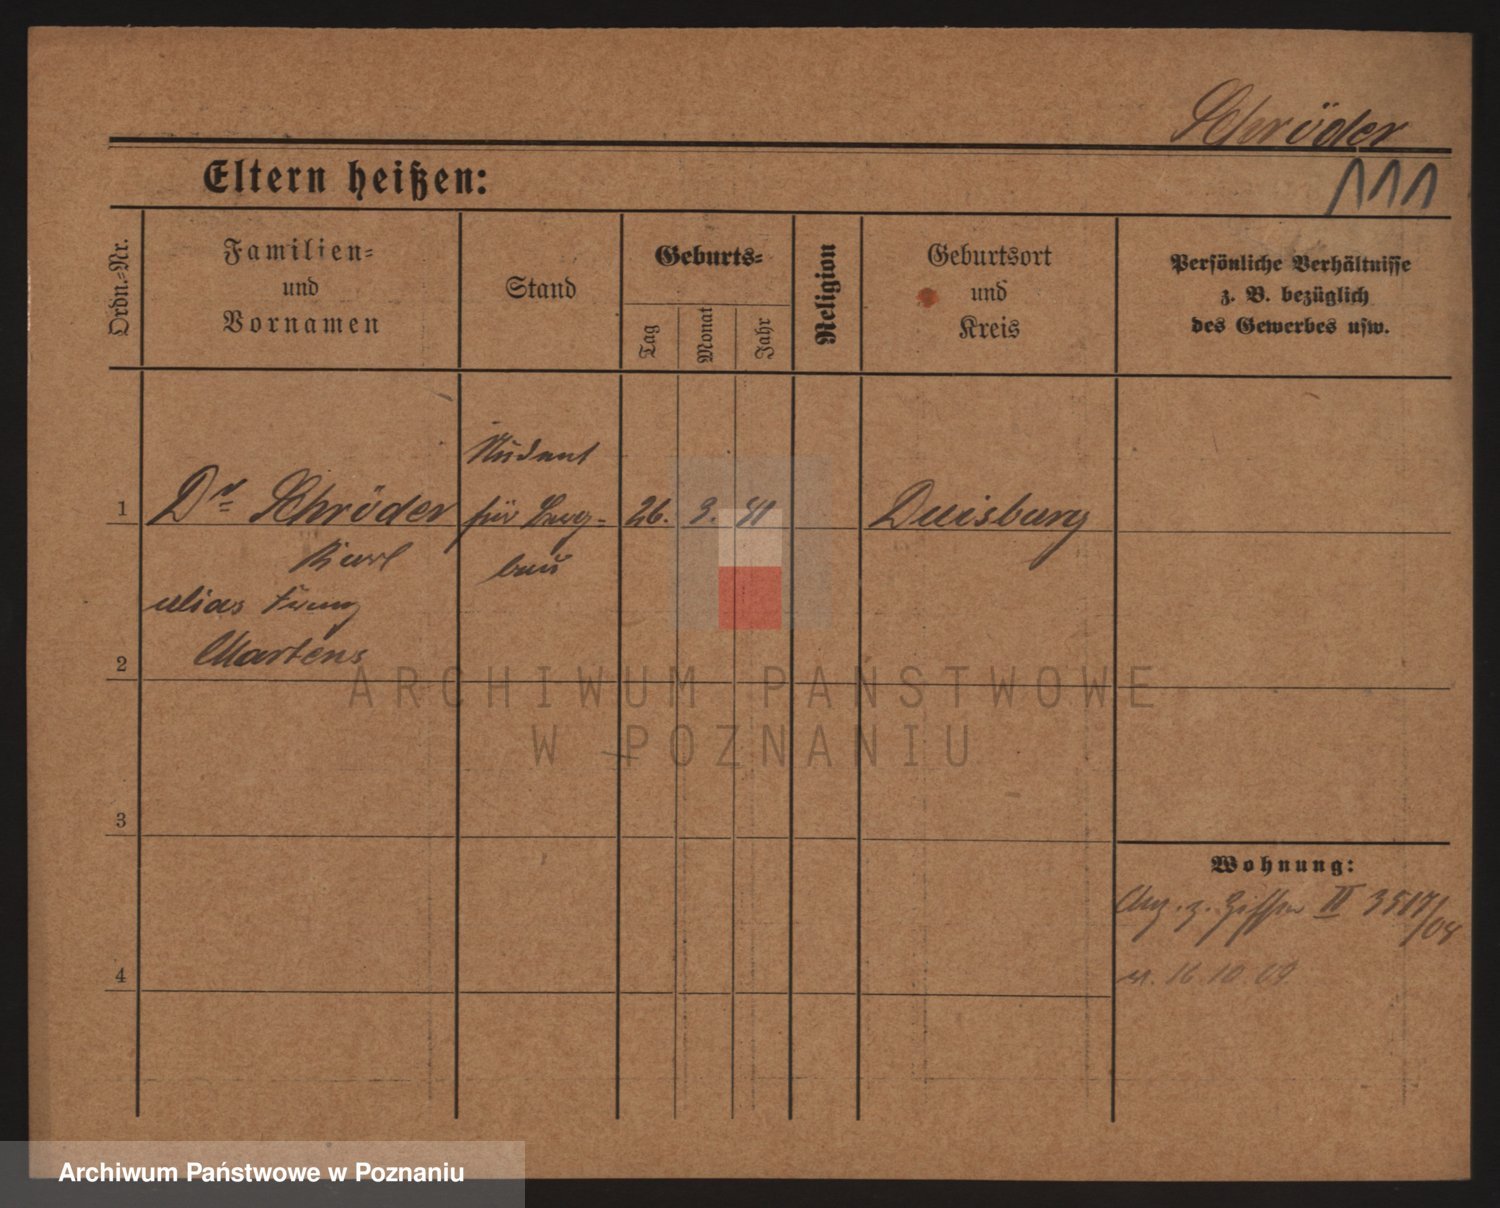 Schröder
111
Eltern heißen:
Ordn.-Nr.
Familien-
und
Vornamen
Stand
Geburts-
Tag
Monat
Jahr
Religion
Geburtsort
und
Kreis
Persönliche Verhältnisse
z. B. bezüglich
des Gewerbes usw.
Student
1 Dr Schröder für Berg- 26. 3. 41 Duisburg
Karl bau
alias Franz
2 Martens
ARCHIWUM PAŃSTWOWE
W POZNANIU
3
Wohnung:
z. II 3517/08
4 16.10.09
Archiwum Państwowe w Poznaniu